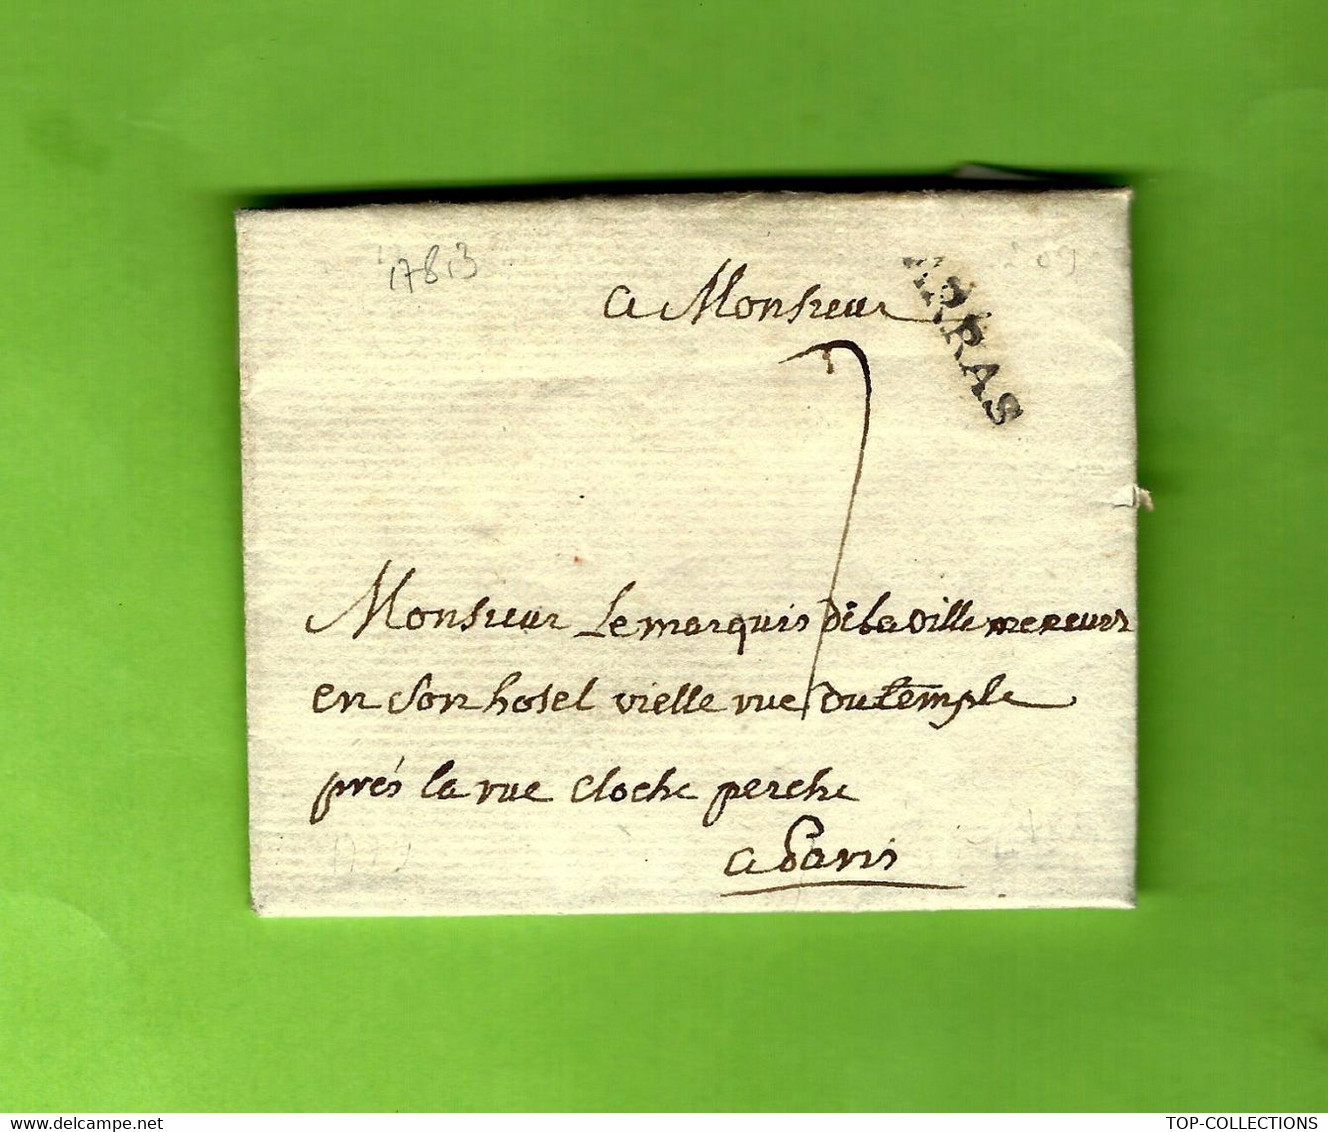 1783
ARRAS
a Monsieur
7
Monsieur Le marquis de la ville
en son hotel vielle rue du temple
prés la rue cloche perche
a Paris
TOP-COLLECTIONS